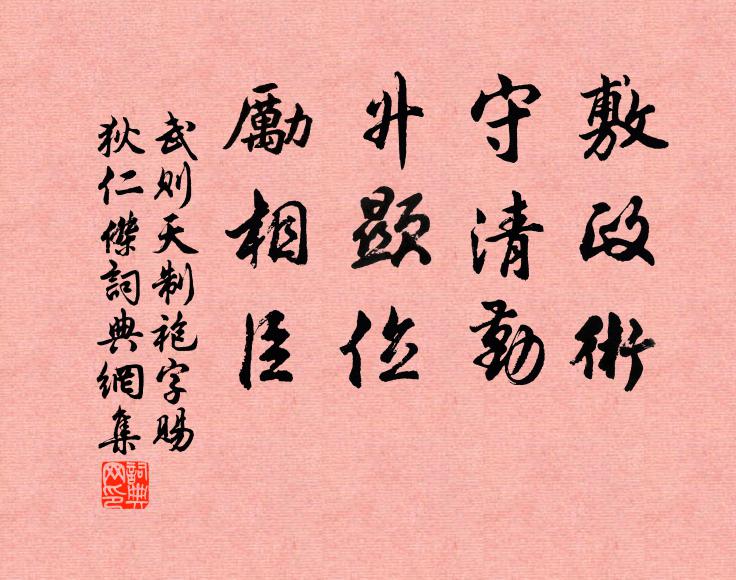 敷政術
守清勤
升顯位
勵相臣
武則天制袍字賜
狄仁傑詞典網集
詞典網印